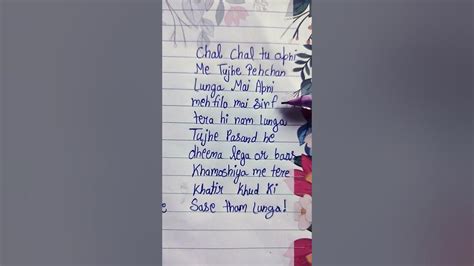 Chal Chal tu apni
Me Tujhe Pehchan
Lunga Mai Apni
mehfilo mai sirf
tera hi nam Lunga
Tujhe Pasand he
dheema lega or baas
Khamoshiya me tere
Khatir Khud Ki
Sase tham Lunga!